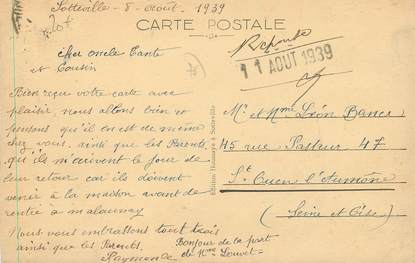 Sotteville - 8 - Août 1939
CARTE POSTALE
20f
Réponse
11 AOUT 1939
cher oncle Tante
et Cousin
Bien reçue votre carte avec
plaisir, nous allons bien et
pensons qu'il en est de même
chez vous. ainsi que les Parents.
qu'ils m'écrivent le jour de
leur retour car ils doivent
venir à la maison avant de
rentée a malaunay
Nous vous embrassons tout trois
ainsi que les Parents.
Raymonde
Bonjour de la part
de Mme Louvet
Edition Houssaye à Sotteville
Mr et Mme Léon Bance
45 rue Pasteur 47
St Ouen l'Aumône
(Seine et Oise)